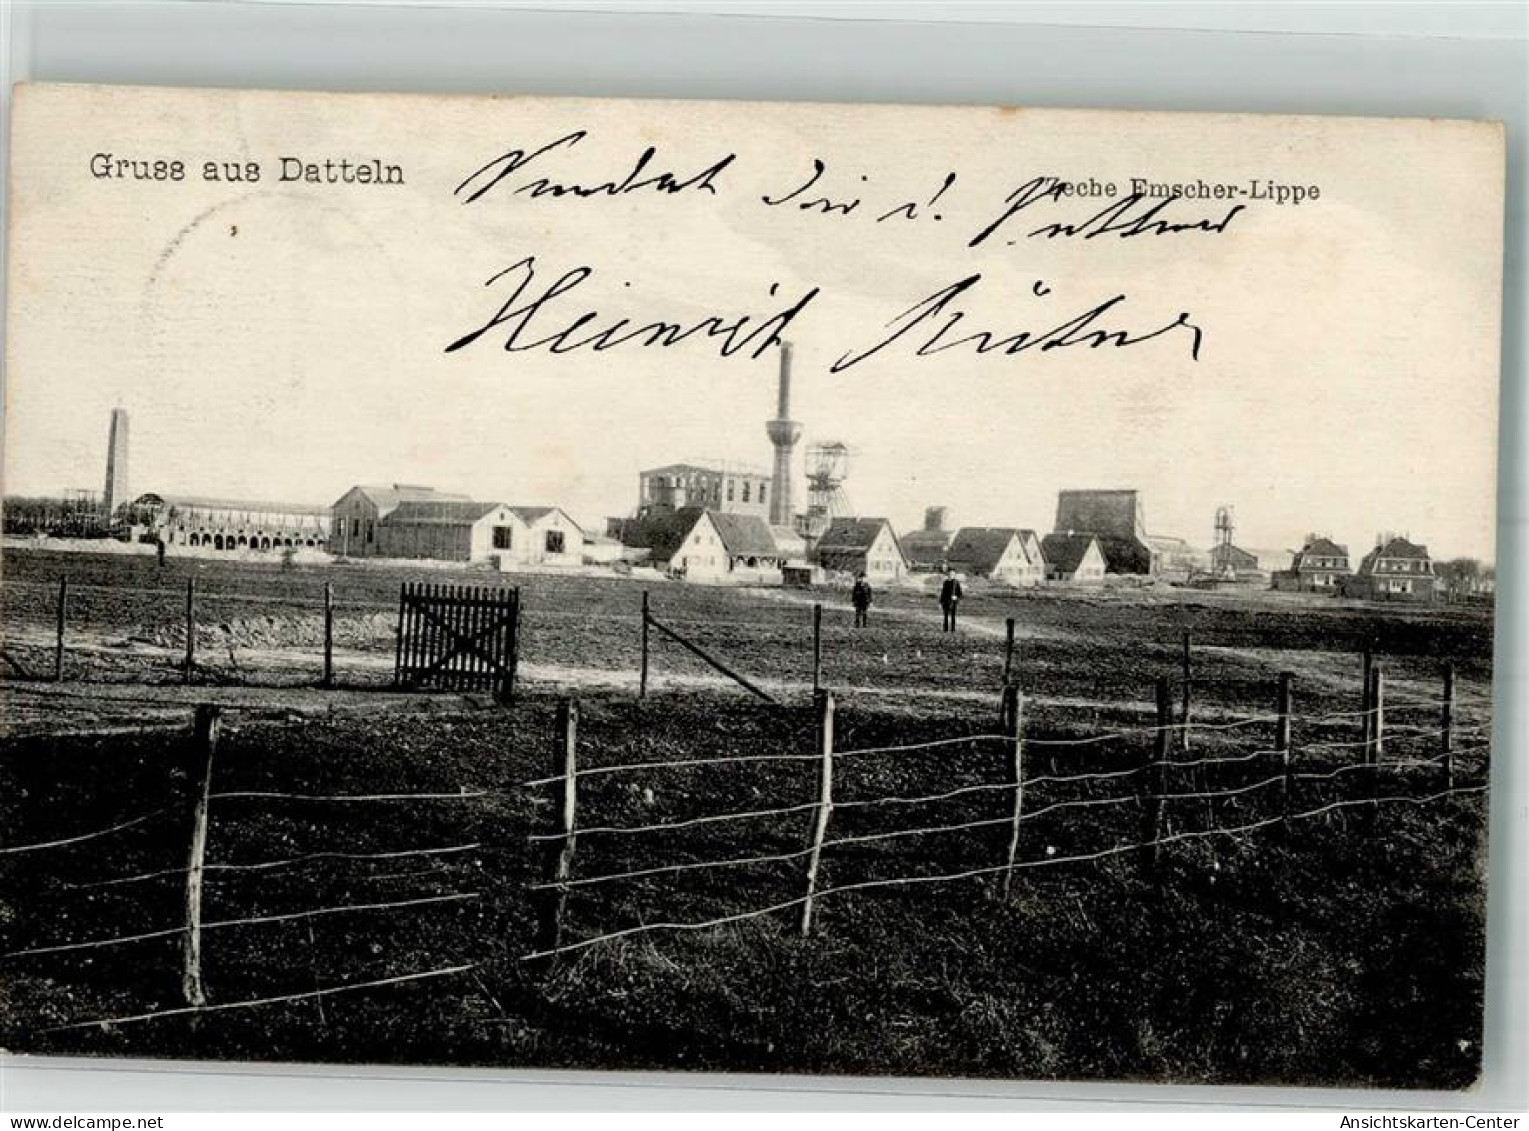 Gruss aus Datteln
Zeche Emscher-Lippe
Sendet Dir d.
Heinrich
www.delcampe.net
Ansichtskarten-Center